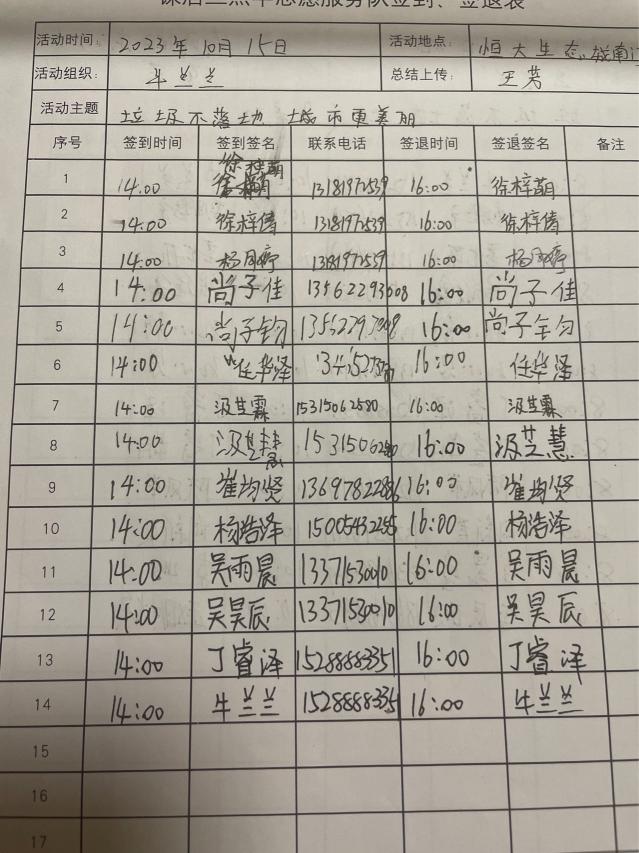 课后三点半志愿服务队签到、签退表
活动时间： 2023年10月15日 活动地点： 恒大生态城南门
活动组织： 牛兰兰 总结上传： 王芳
活动主题 垃圾不落地 城市更美丽
序号 签到时间 签到签名 联系电话 签退时间 签退签名 备注
1 14:00 徐梓萌 13181971539 16:00 徐梓萌
2 14:00 徐梓倩 13181971539 16:00 徐梓倩
3 14:00 杨月婷 13181971539 16:00 杨月婷
4 14:00 尚子佳 13562293608 16:00 尚子佳
5 14:00 尚子钧 16:00 尚子钧
6 14:00 任华泽 16:00 任华泽
7 14:00 汲芝霖 15315062580 16:00 汲芝霖
8 14:00 汲芝慧 16:00 汲芝慧
9 14:00 崔均贤 13697822886 16:00 崔均贤
10 14:00 杨浩泽 15005432255 16:00 杨浩泽
11 14:00 吴雨晨 13371530010 16:00 吴雨晨
12 14:00 吴昊辰 13371530010 16:00 吴昊辰
13 14:00 丁睿泽 15288883351 16:00 丁睿泽
14 14:00 牛兰兰 15288883351 16:00 牛兰兰
15
16
17